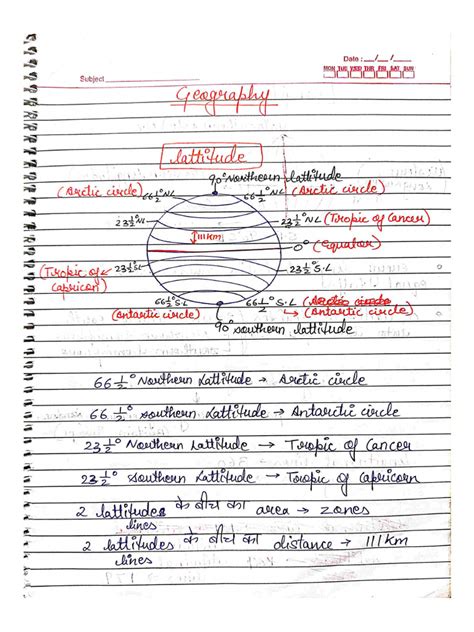 Date : __/__/__
MON TUE WED THU FRI SAT SUN
Subject
Geography
lattitude
90° Northern lattitude
(Arctic circle) 66½° NL 66½° NL (Arctic circle)
23½° NL 23½° NL (Tropic of Cancer)
111km
0° (Equator)
(Tropic of Capricon) 23½° SL 23½° S.L
66½° S.L 66½° S.L (Arctic circle)
(Antartic circle) → (Antartic circle)
90° southern lattitude
66½° Northern Lattitude → Arctic circle
66½° southern Lattitude → Antarctic circle
23½° Northern Lattitude → Tropic of Cancer
23½° southern Lattitude → Tropic of Capricorn
2 lattitudes के बीच का area → zones
lines
2 lattitudes के बीच का distance → 111 km
lines